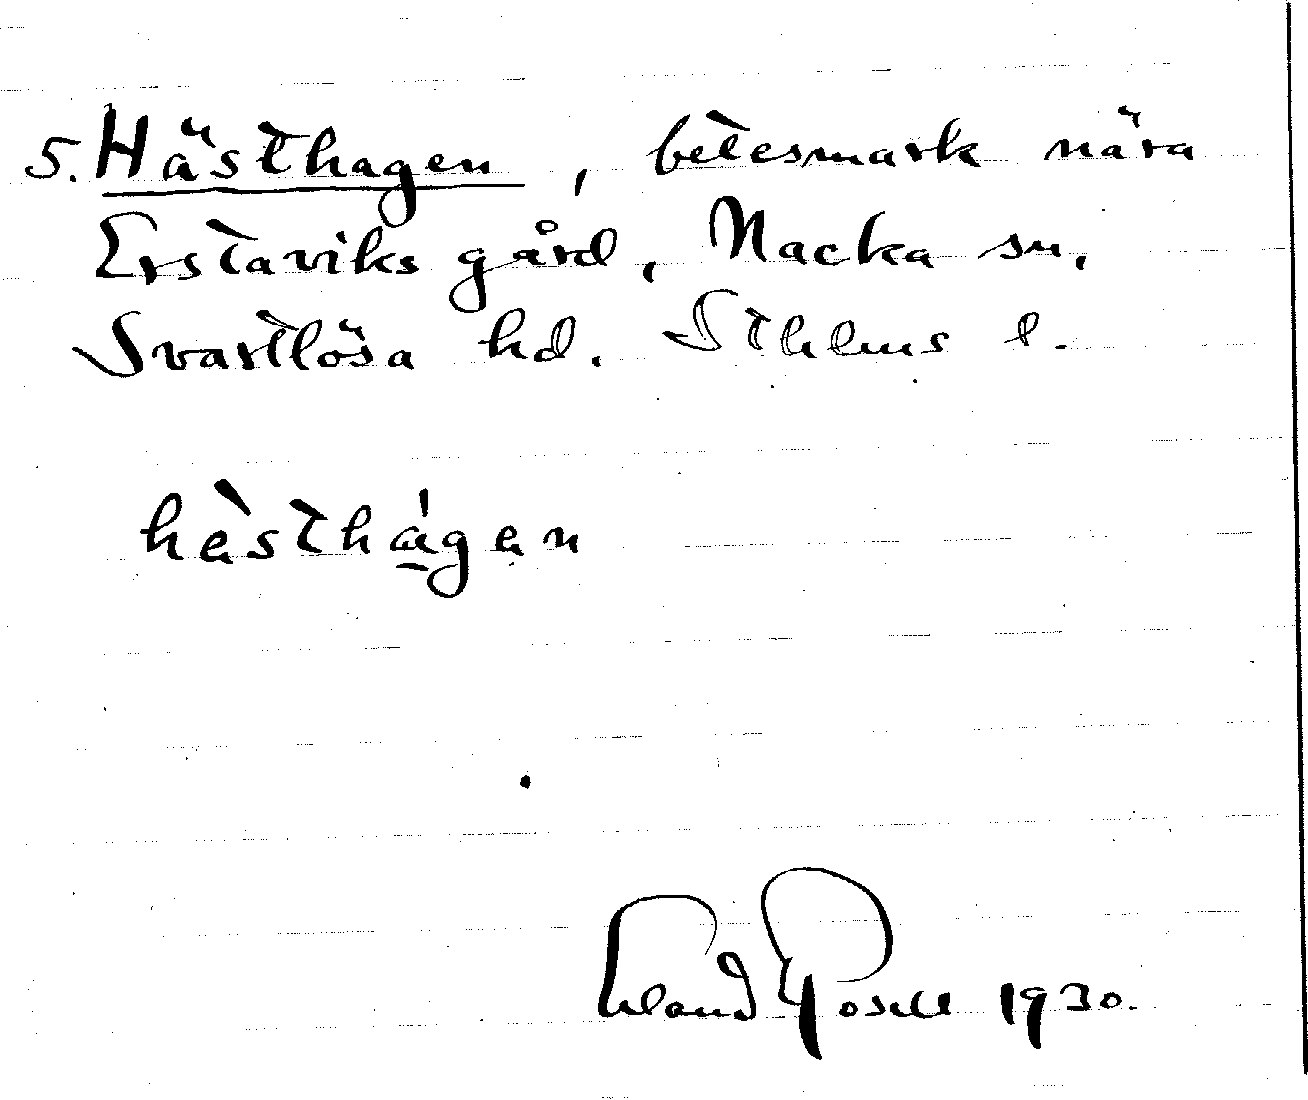 5. Hästhagen, betesmark nära
Erstaviks gård, Nacka sn,
Svartlösa hd. Sthlms l.
hàsthágen
Erland Rosell 1930.